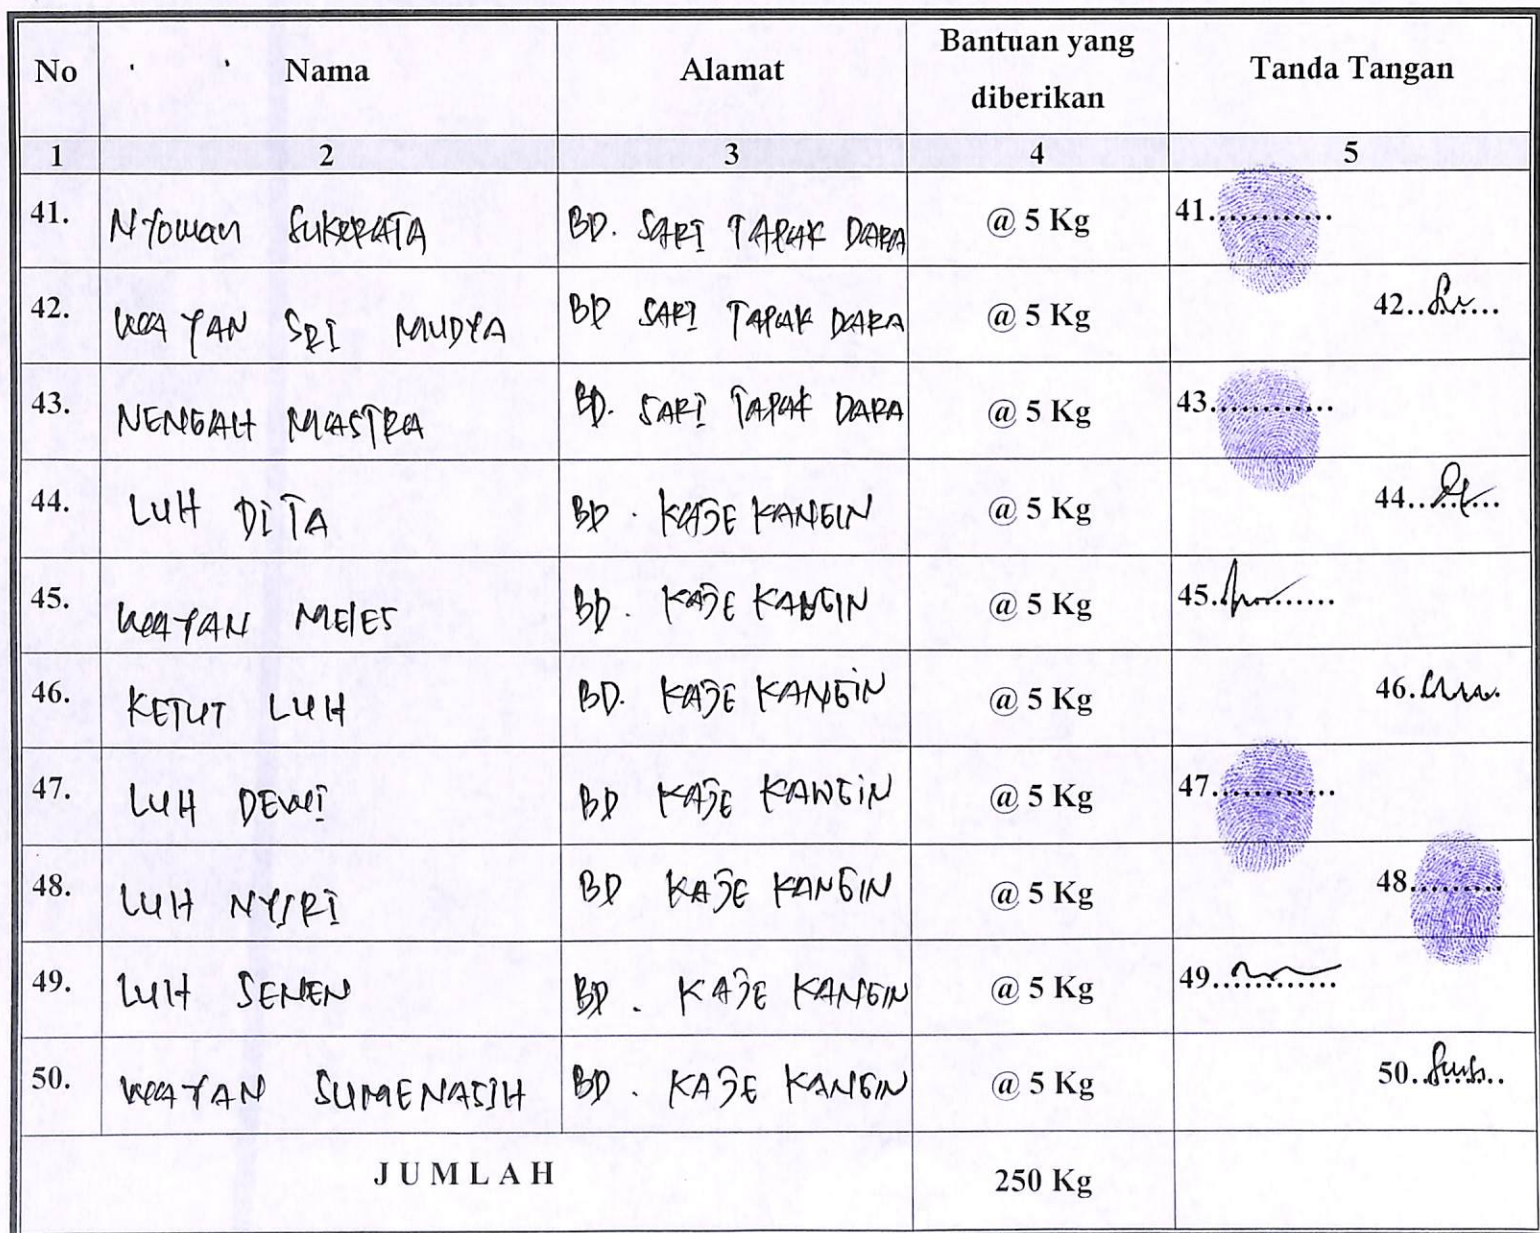 No Nama Alamat Bantuan yang diberikan Tanda Tangan
1 2 3 4 5
41. NYOMAN SUKERATA BD. SARI TAPAK DARA @ 5 Kg 41.............
42. WAYAN SRI MUDYA BD SARI TAPAK DARA @ 5 Kg 42..
43. NENGAH MASTRA BD. SARI TAPAK DARA @ 5 Kg 43.............
44. LUH DITA BD. KAJE KANGIN @ 5 Kg 44...
45. WAYAN MELES BD. KAJE KANGIN @ 5 Kg 45.
46. KETUT LUH BD. KAJE KANGIN @ 5 Kg 46.
47. LUH DEWI BD KAJE KANGIN @ 5 Kg 47.............
48. LUH NYIRI BD KAJE KANGIN @ 5 Kg 48..........
49. LUH SENEN BD. KAJE KANGIN @ 5 Kg 49.............
50. WAYAN SUMENASIH BD. KAJE KANGIN @ 5 Kg 50..
JUMLAH 250 Kg